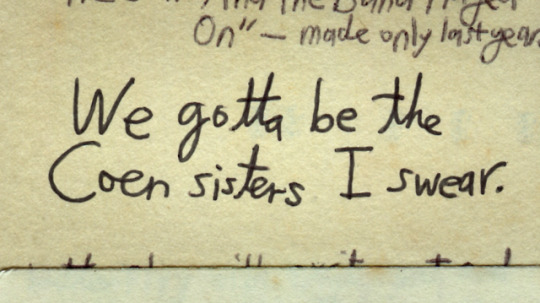 And the Band Played
On" — made only last year.
We gotta be the
Coen sisters I swear.